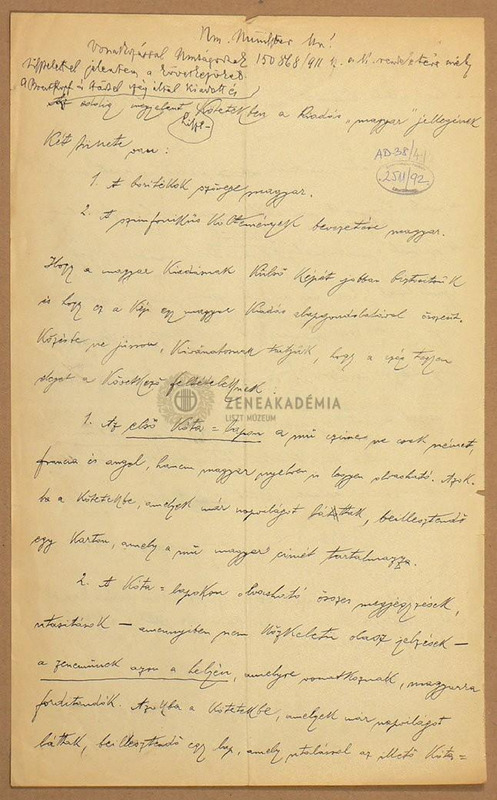 Nm. Miniszter Úr!
Vonatkozással Nmságodnak 150868/911 sz. a. k. rendeletére mély
tisztelettel jelentem a következőket.
A Breitkopf és Härtel cég által kiadott és
eddig megjelent Liszt- kötetekben a kiadás „magyar" jellegének
két tünete van:
1. A borítékok szövege magyar.
2. A szimfonikus költemények bevezetése magyar.
AD-38/41
2511/92.
Hogy a magyar kiadásnak külső képét jobban biztosítsuk
és hogy ez a kép egy magyar kiadás alapgondolatával össze-
közésbe ne jusson, kívánatosnak tartjuk, hogy a cég tegyen
eleget a következő feltételeknek.
1. Az első kóta=lapon a mű címe ne csak német,
francia és angol, hanem magyar nyelven is legyen olvasható. Azok-
ba a kötetekbe, amelyek már napvilágot láttak, beillesztendő
egy karton, amely a mű magyar címét tartalmazza.
2. A kóta=lapokon olvasható összes megjegyzések,
utasítások – amennyiben nem közkeletű olasz jelzések –
a zeneműnek azon a helyén, amelyre vonatkoznak, magyarra
fordítandók. Azokba a kötetekbe, amelyek már napvilágot
láttak, beillesztendő egy lap, amely utalással az illető kóta=
ZENEAKADÉMIA
LISZT MÚZEUM